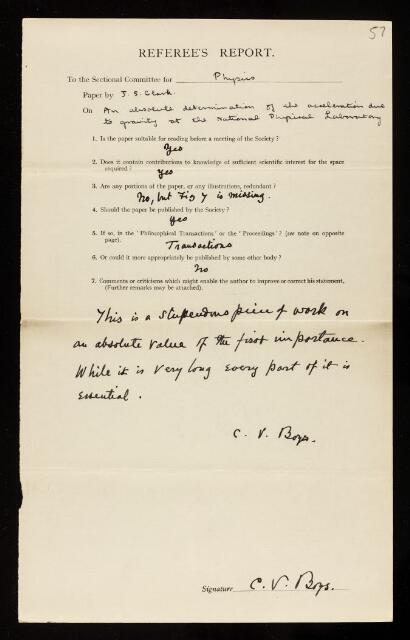 57
REFEREE'S REPORT.
To the Sectional Committee for Physics
Paper by J. S. Clark.
On An absolute determination of the acceleration due
to gravity at the National Physical Laboratory
1. Is the paper suitable for reading before a meeting of the Society?
Yes
2. Does it contain contributions to knowledge of sufficient scientific interest for the space
required?
Yes
3. Are any portions of the paper, or any illustrations, redundant?
No, but Fig 7 is missing.
4. Should the paper be published by the Society?
Yes
5. If so, in the 'Philosophical Transactions' or the 'Proceedings'? (see note on opposite
page).
Transactions
6. Or could it more appropriately be published by some other body?
No
7. Comments or criticisms which might enable the author to improve or correct his statement.
(Further remarks may be attached).
This is a stupendous piece of work on
an absolute value of the first importance.
While it is very long every part of it is
essential.
C. V. Boys.
Signature C. V. Boys.